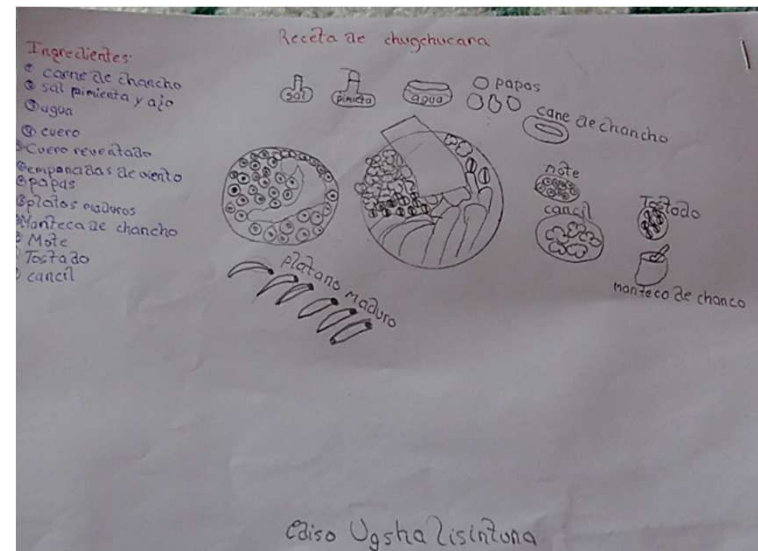 Receta de chugchucara
Ingredientes:
① carne de chancho
② sal pimienta y ajo
③ agua
④ cuero
Cuero reventado
empanadas de viento
papas
platos maduros
Manteca de chancho
Mote
Tostado
cancil
sal
pimieta
agua
papas
cane de chancho
mote
cancil
Tostado
manteco de chanco
platano maduro
Ediso Ugsha Lisintuna